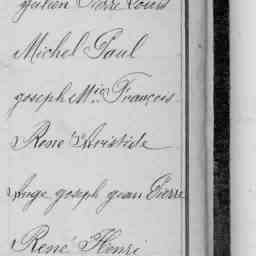 Julien Pierre Louis
Michel Paul
joseph Mie François
René Aristide
Ange joseph jean Pierre
René Henri